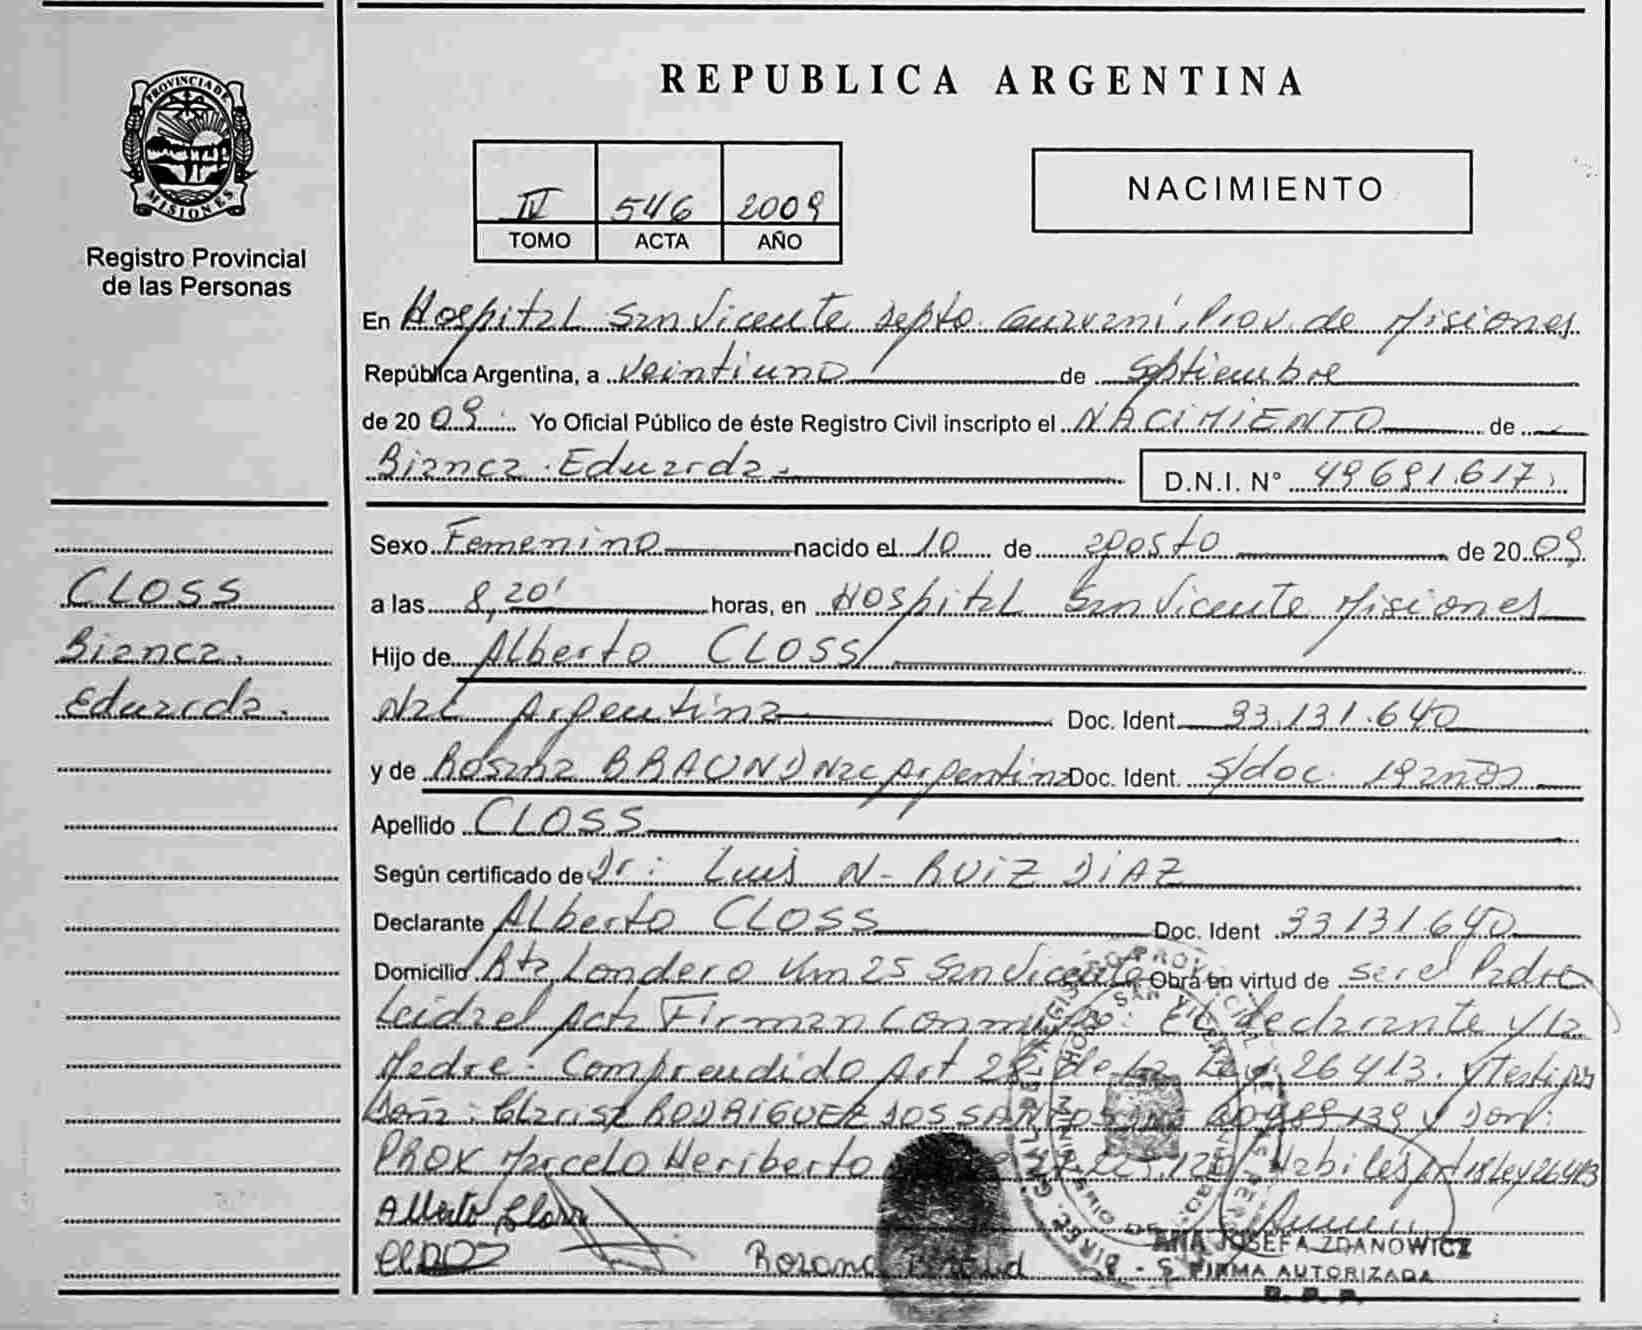 PROVINCIA DE
MISIONES
Registro Provincial
de las Personas
REPUBLICA ARGENTINA
IV 546 2009
TOMO ACTA AÑO
NACIMIENTO
En Hospital San Vicente Depto. Guaraní, Prov. de Misiones
República Argentina, a Veintiuno de Septiembre
de 2009. Yo Oficial Público de éste Registro Civil inscripto el NACIMIENTO de
Bianca Eduarda. D.N.I. N° 49.691.617
Sexo Femenino nacido el 10 de agosto de 2009
CLOSS
Bianca
Eduarda.
a las 8,20' horas, en Hospital San Vicente Misiones
Hijo de Alberto CLOSS
Nac Argentina Doc. Ident. 33.131.640
y de Rosana Nac Argentina Doc. Ident. s/doc. 19 años
Apellido CLOSS
Según certificado de Dr: Luis N. RUIZ DIAZ
Declarante Alberto CLOSS Doc. Ident 33.131.640
Domicilio Rta Londero Km 25 San Vicente Obra en virtud de ser el Padre
Leida el Acta Firman Conmigo: El declarante y la
Madre. Comprendido Art 28 de la Ley 26413. y Testigos
Doña: Clarisa RODRIGUEZ DOS SANTOS y Don:
PROX Marcelo Heriberto Habiles Art Ley 26413
Alberto Closs
Rosana
ANA JOSEFA ZDANOWICZ
FIRMA AUTORIZADA